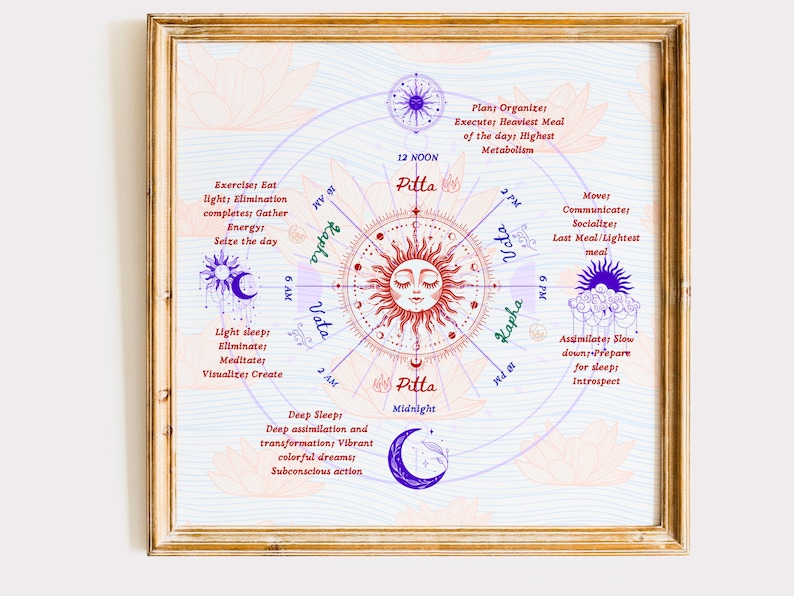 Plan; Organize;
Execute; Heaviest Meal
of the day; Highest
Metabolism
12 NOON
Pitta
2 PM
Vata
Move;
Communicate;
Socialize;
Last Meal/Lightest
meal
6 PM
Assimilate; Slow
down; Prepare
for sleep;
Introspect
Kapha
10 PM
Pitta
Midnight
Deep Sleep;
Deep assimilation and
transformation; Vibrant
colorful dreams;
Subconscious action
2 AM
Vata
Light sleep;
Eliminate;
Meditate;
Visualize; Create
6 AM
Exercise; Eat
light; Elimination
completes; Gather
Energy;
Seize the day
Kapha
10 AM